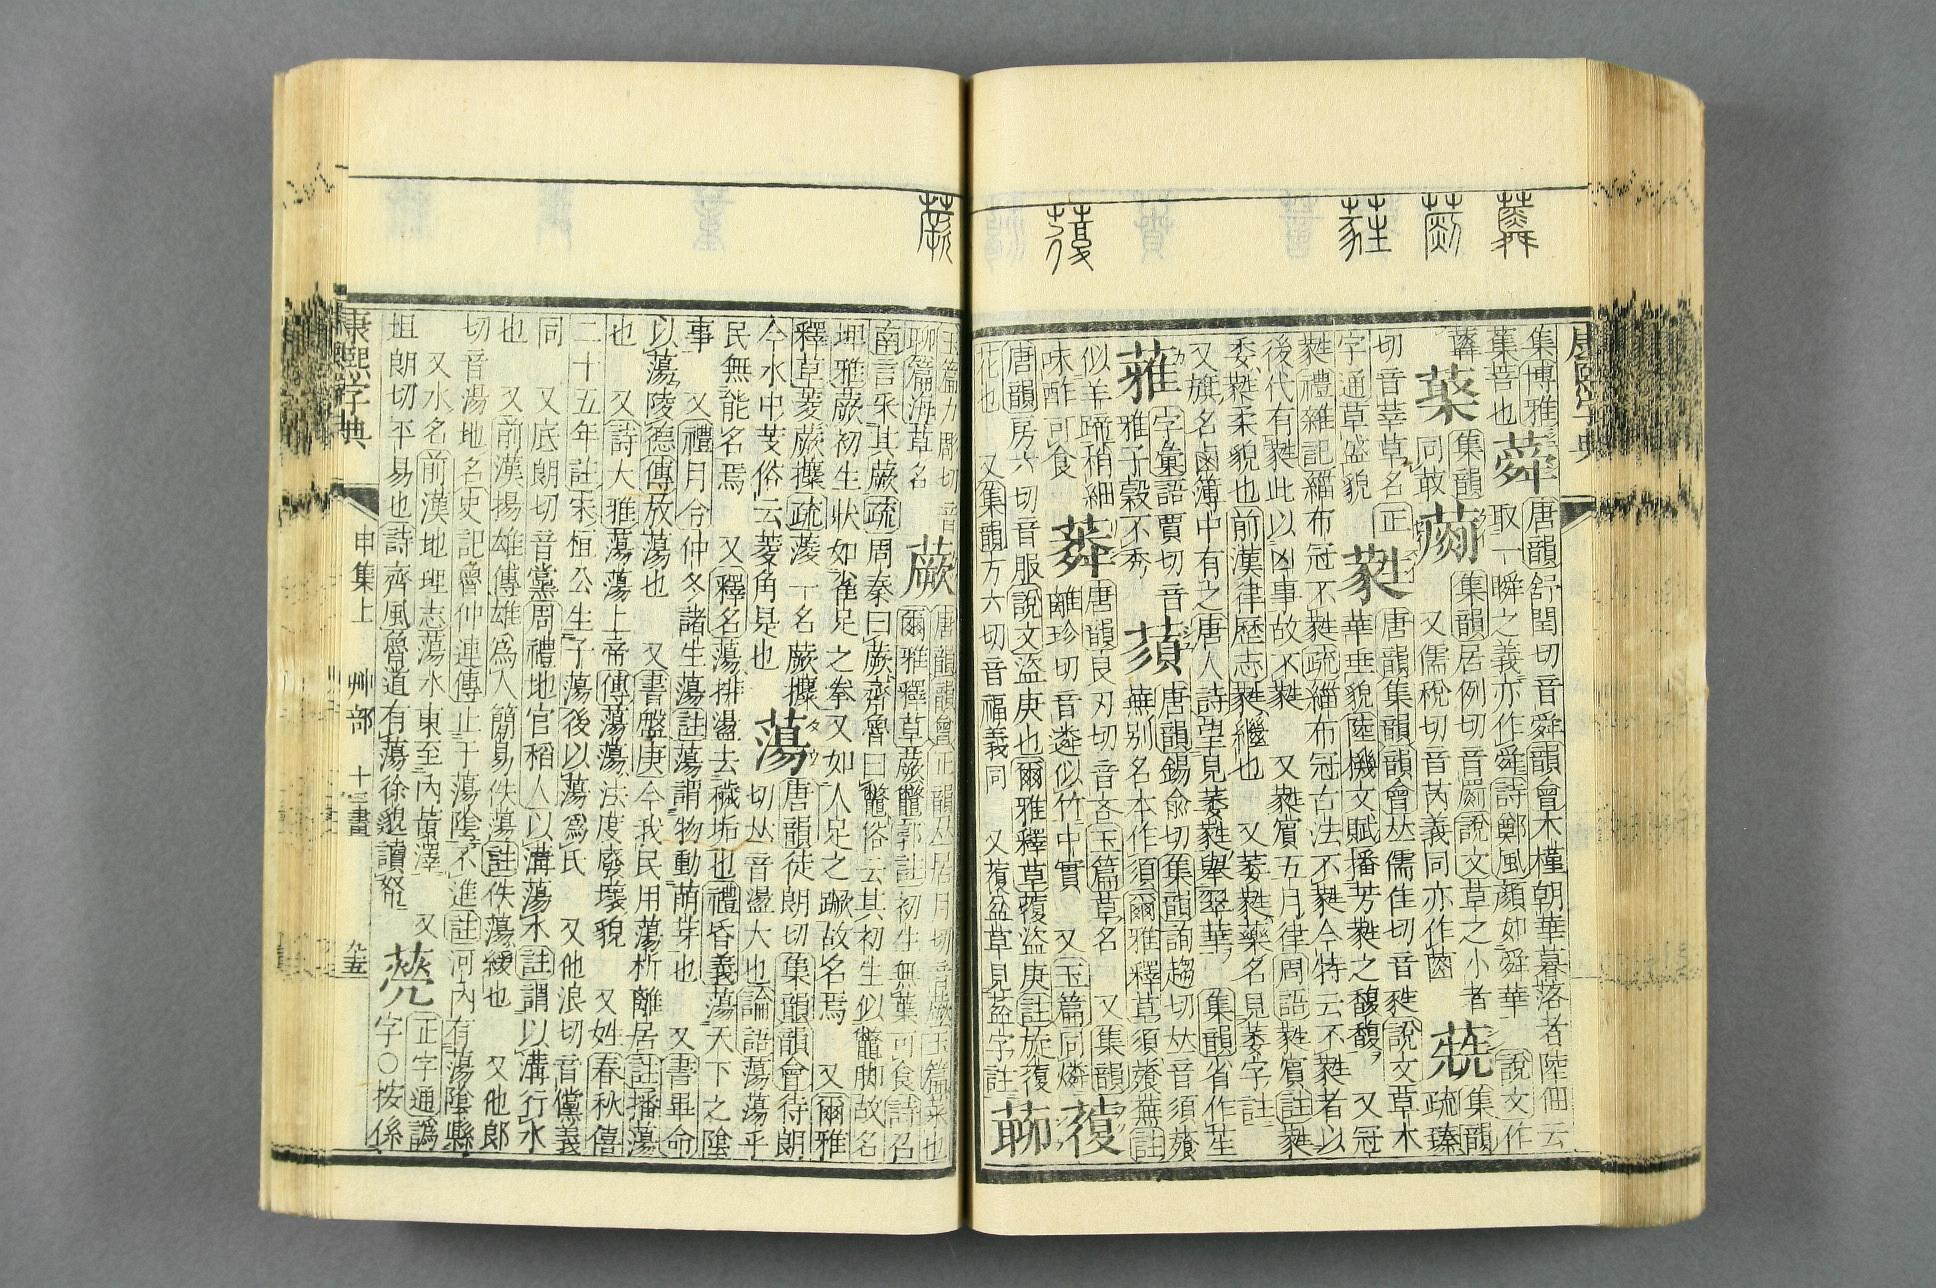 康熙字典
蕣 唐韻舒閏切音舜韻會木槿朝華暮落者陸佃云
取一瞬之義亦作舜詩鄭風顏如舜華 說文作
集韻 集韻居例切音罽說文草之小者 集韻
同敢 又儒稅切音芮義同亦作 疏臻
切音莘草名 正
字通草盛貌 蕤 唐韻集韻韻會𠀤儒隹切音甤說文草木
華垂貌陸機文賦播芳蕤之馥馥 又冠
蕤禮雜記緇布冠不蕤疏緇布冠古法不蕤今特云不蕤者以
後代有蕤此以凶事故不蕤 又蕤賓五月律周語蕤賓註蕤
委蕤柔貌也前漢律歷志蕤繼也 又萎蕤藥名見萎字註
又旗名鹵簿中有之唐人詩望見萎蕤舉翠華 集韻省作苼
字彙語賈切音
雅子穀不秀 蕦 唐韻錫兪切集韻詢趨切𠀤音須薞
蕪別名本作須爾雅釋草須薞蕪註
似羊蹄稍細
味酢可食 唐韻良刃切音吝玉篇草名 又集韻
離珍切音遴似竹中實 又玉篇同燐
蕧
唐韻房六切音服說文盜庚也爾雅釋草蕧盜庚註旋蕧
花也 又集韻方六切音福義同 又蕧盆草見葐字註
玉篇力彫切音
聊篇海草名 蕨 唐韻韻會正韻𠀤居月切音厥玉篇菜也
爾雅釋草蕨虌郭註初生無葉可食詩召
南言采其蕨疏周秦曰蕨齊魯曰虌俗云其初生似虌脚故名
埤雅蕨初生狀如雀足之拳又如人足之蹶故名焉 又爾雅
釋草菱蕨攗疏菱一名蕨攗
今水中芰俗云菱角是也 蕩 唐韻徒朗切集韻韻會待朗
切𠀤音盪大也論語蕩蕩乎
民無能名焉 又釋名蕩排盪去穢垢也禮昏義蕩天下之陰
事 又禮月令仲冬諸生蕩註蕩謂物動萌芽也 又書畢命
以蕩陵德傳放蕩也 又書盤庚今我民用蕩析離居註播蕩
也 又詩大雅蕩蕩上帝傳蕩蕩法度廢壞貌 又姓春秋僖
二十五年註宋桓公生子蕩後以蕩爲氏 又他浪切音儻義
同 又底朗切音黨周禮地官稻人以溝蕩水註謂以溝行水
也 又前漢揚雄傳雄爲人簡易佚蕩註佚蕩緩也 又他郎
切音湯地名史記魯仲連傳止于蕩陰不進註河內有蕩陰縣
又水名前漢地理志蕩水東至內黃澤 又
坦朗切平易也詩齊風魯道有蕩徐邈讀 正字通譌
字○按係
康熙字典 申集上 艸部 十二畫